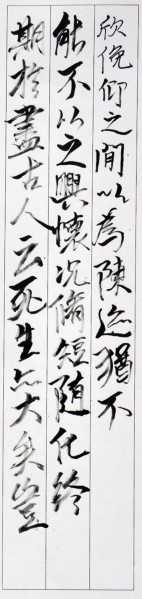 欣俛仰之間以為陳迹猶不
能不以之興懷況脩短隨化終
期於盡古人云死生亦大矣豈